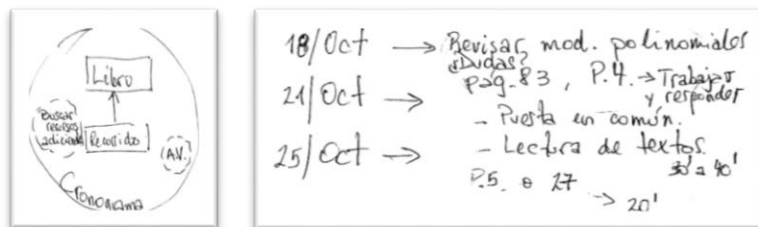 Libro
Buscar
recursos
adicionales
Recorrido
(A.V.)
Cronograma
18/Oct → Revisar mod. polinomiales
¿Dudas?
21/Oct → Pág. 83, P.4. → Trabajar
y responder
- Puesta en común.
25/Oct → - Lectura de textos.
30' a 40'
P.5. 27
→ 20'